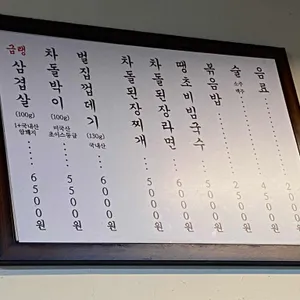 금탱
삼겹살 (100g) 1+국내산 암퇘지 .... 6500원
차돌박이 (100g) 미국산 초이스등급 .... 6500원
벌집껍데기 (130g) 국내산 .... 6000원
차돌된장찌개 .... 5000원
차돌된장라면 .... 5000원
땡초비빔국수 .... 6000원
볶음밥 ........ 2500원
술 소주 맥주 ........ 4500원
음료 ........ 2000원